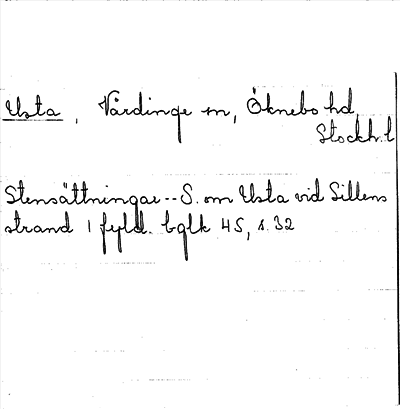 Usta, Vårdinge sn, Öknebo hd,
Stockh. l
Stensättningar -- S. om Usta vid Sillens
strand 1 fyld. bglk 45, s. 32